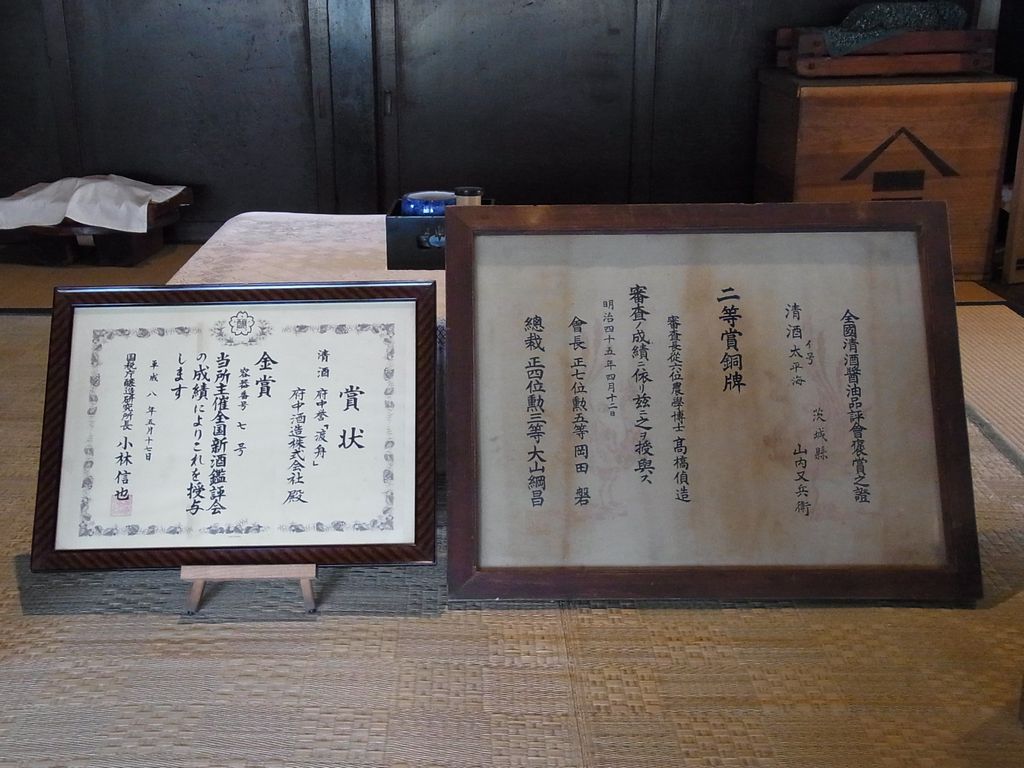 賞状
清酒 府中誉「渡舟」
府中酒造株式会社 殿
金賞
容器番号 七 号
当所主催全国新酒鑑評会
の成績によりこれを授与
します
平成 八 年 五月十七日
国税庁醸造研究所長 小林信也
全國清酒醬油品評會褒賞之證
茨城縣
清酒 イ号 太平海
山内又兵衛
二等賞銅牌
審査長從六位農學博士 髙橋偵造
審査ノ成績ニ依リ玆ニ之ヲ授與ス
明治四十五年四月十二日
會長 正七位勲五等 岡田 磐
總裁 正四位勲三等 大山綱昌